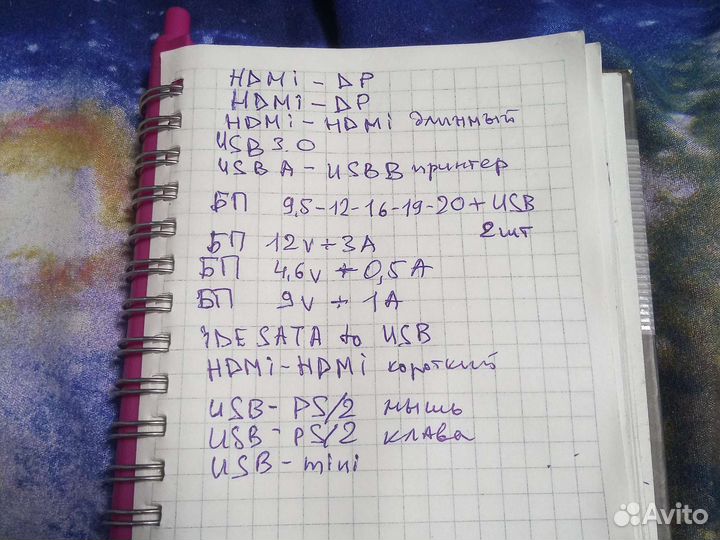 HDMi - DP
HDMi - DP
HDMi - HDMi длинный
USB 3.0
USB A - USB B принтер
БП 9,5-12-16-19-20 + USB
2 шт
БП 12v ÷ 3A
БП 4,6v ÷ 0,5A
БП 9v ÷ 1A
IDE SATA to USB
HDMi - HDMi короткий
USB - PS/2 мышь
USB - PS/2 клава
USB - mini
Avito